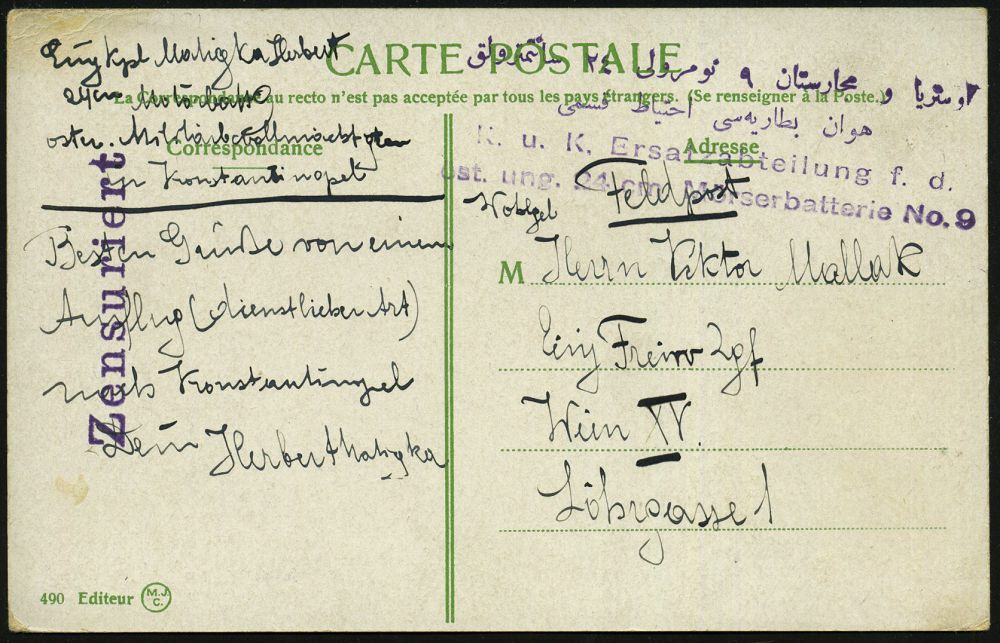 CARTE POSTALE
La Correspondance au recto n'est pas acceptée par tous les pays étrangers. (Se renseigner à la Poste.)
Correspondance
Adresse
Einj Kpl Matigka Herbert
24 cm
österr. Militärbevollmächtigten
in Konstantinopel
Zensuriert
Besten Grüße von einem
Ausflug (dienstlicher Art)
nach Konstantinopel
Dein Herbert Matigka
اوستريا و مجارستان ٩ نومرولى ٢٤ سانتيمترولق
هوان بطاريه‌سى احتياط قسمى
K. u. K. Ersatzabteilung f. d.
öst. ung. 24 cm Mörserbatterie No. 9
Feldpost
Wohlgeb
M Herrn Viktor Mallak
Einj Freiw Zgf
Wien XV.
Löhrgasse 1
490 Editeur M.J.C.